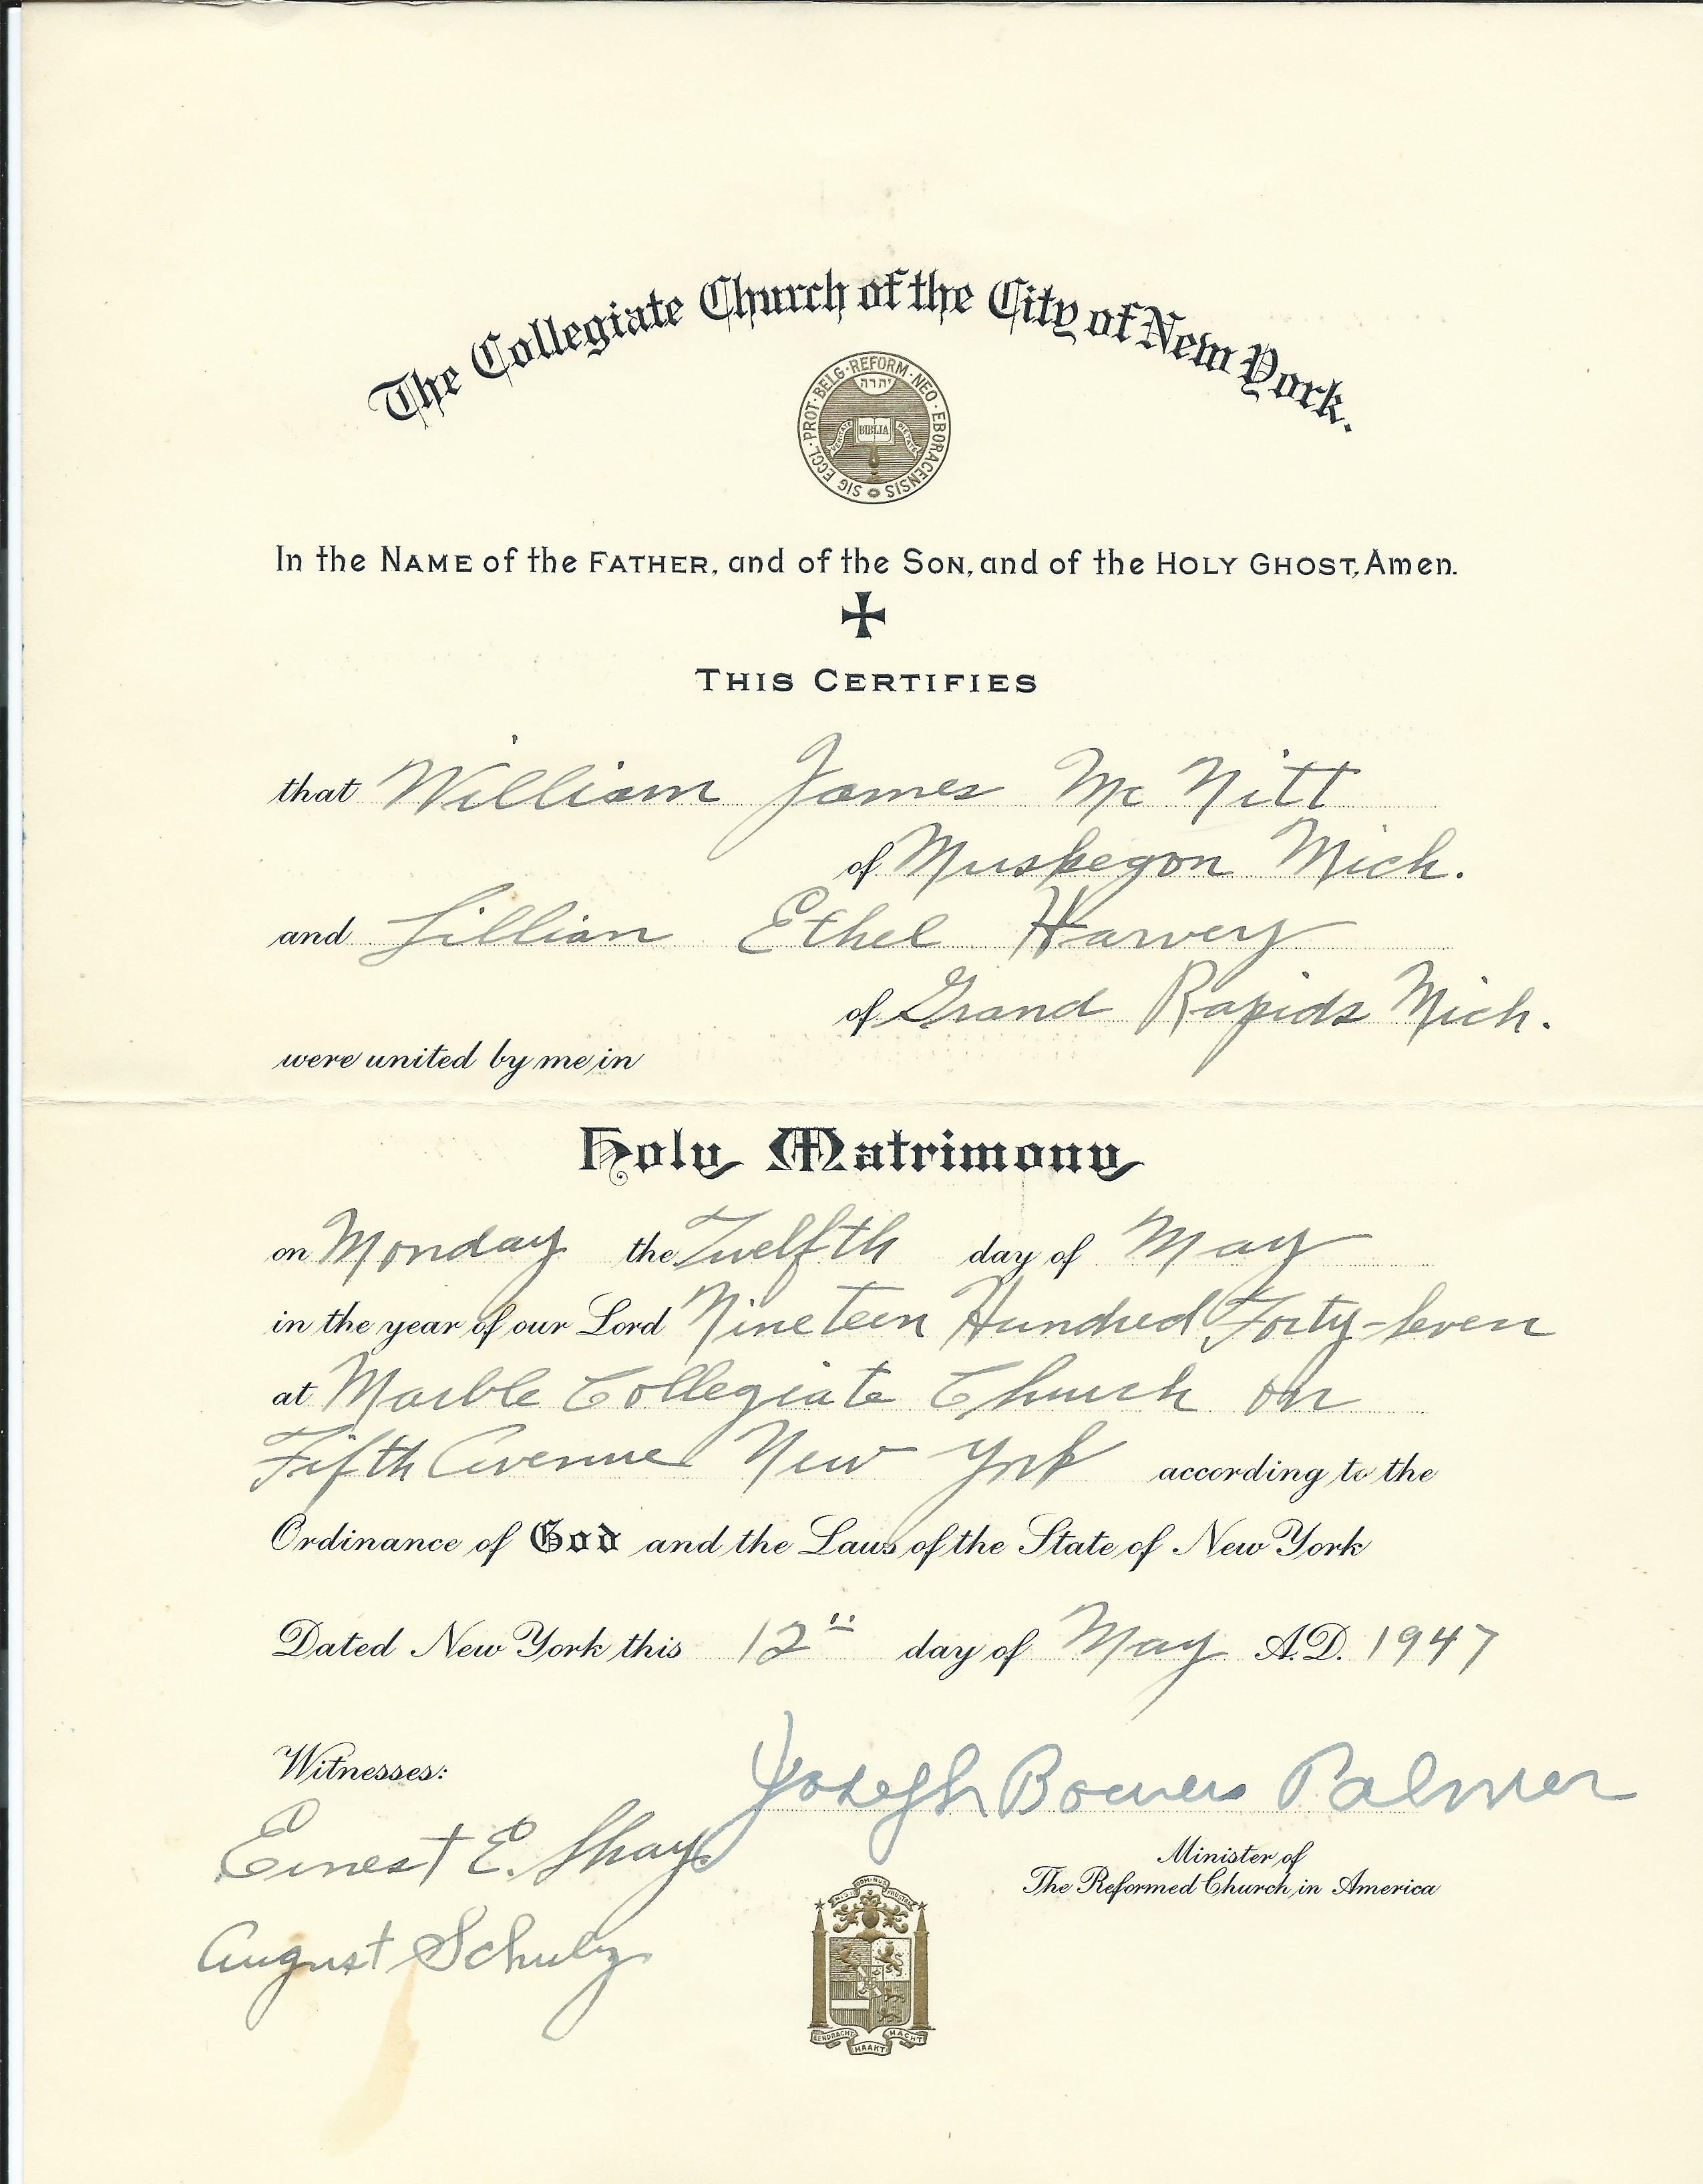 The Collegiate Church of the City of New York.
SIG ECCL · PROT · BELG · REFORM · NEO · EBORACENSIS
יהוה
BIBLIA
VERITATE PIETATE
In the NAME of the FATHER, and of the SON, and of the HOLY GHOST, Amen.
THIS CERTIFIES
that William James Mc Nitt
of Muskegon Mich.
and Lillian Ethel Harvey
of Grand Rapids Mich.
were united by me in
Holy Matrimony
on Monday the Twelfth day of May
in the year of our Lord Nineteen Hundred Forty-seven
at Marble Collegiate Church on
Fifth Avenue New York according to the
Ordinance of God and the Laws of the State of New York
Dated New York this 12" day of May A.D. 1947
Witnesses:
Joseph Bowers Palmer
Ernest E. Shay.
Minister of
The Reformed Church in America
August Schulz
DOMINUS FRUSTRA
EENDRACHT MAAKT MACHT